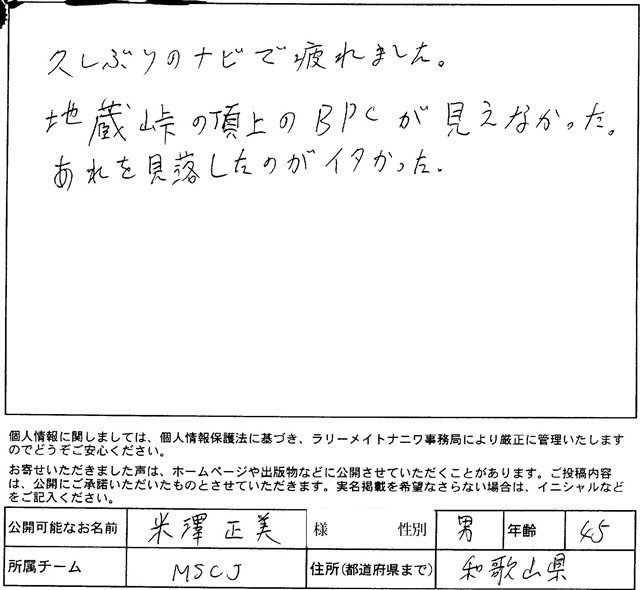 久しぶりのナビで疲れました。
地蔵峠の頂上のBPCが見えなかった。
あれを見落したのがイタかった。
個人情報に関しましては、個人情報保護法に基づき、ラリーメイトナニワ事務局により厳正に管理いたします
のでどうぞご安心ください。
お寄せいただきました声は、ホームページや出版物などに公開させていただくことがあります。ご投稿内容
は、公開にご承諾いただいたものとさせていただきます。実名掲載を希望なさらない場合は、イニシャルなど
をご記入ください。
公開可能なお名前 米澤正美 様 性別 男 年齢 45
所属チーム MSCJ 住所(都道府県まで) 和歌山県